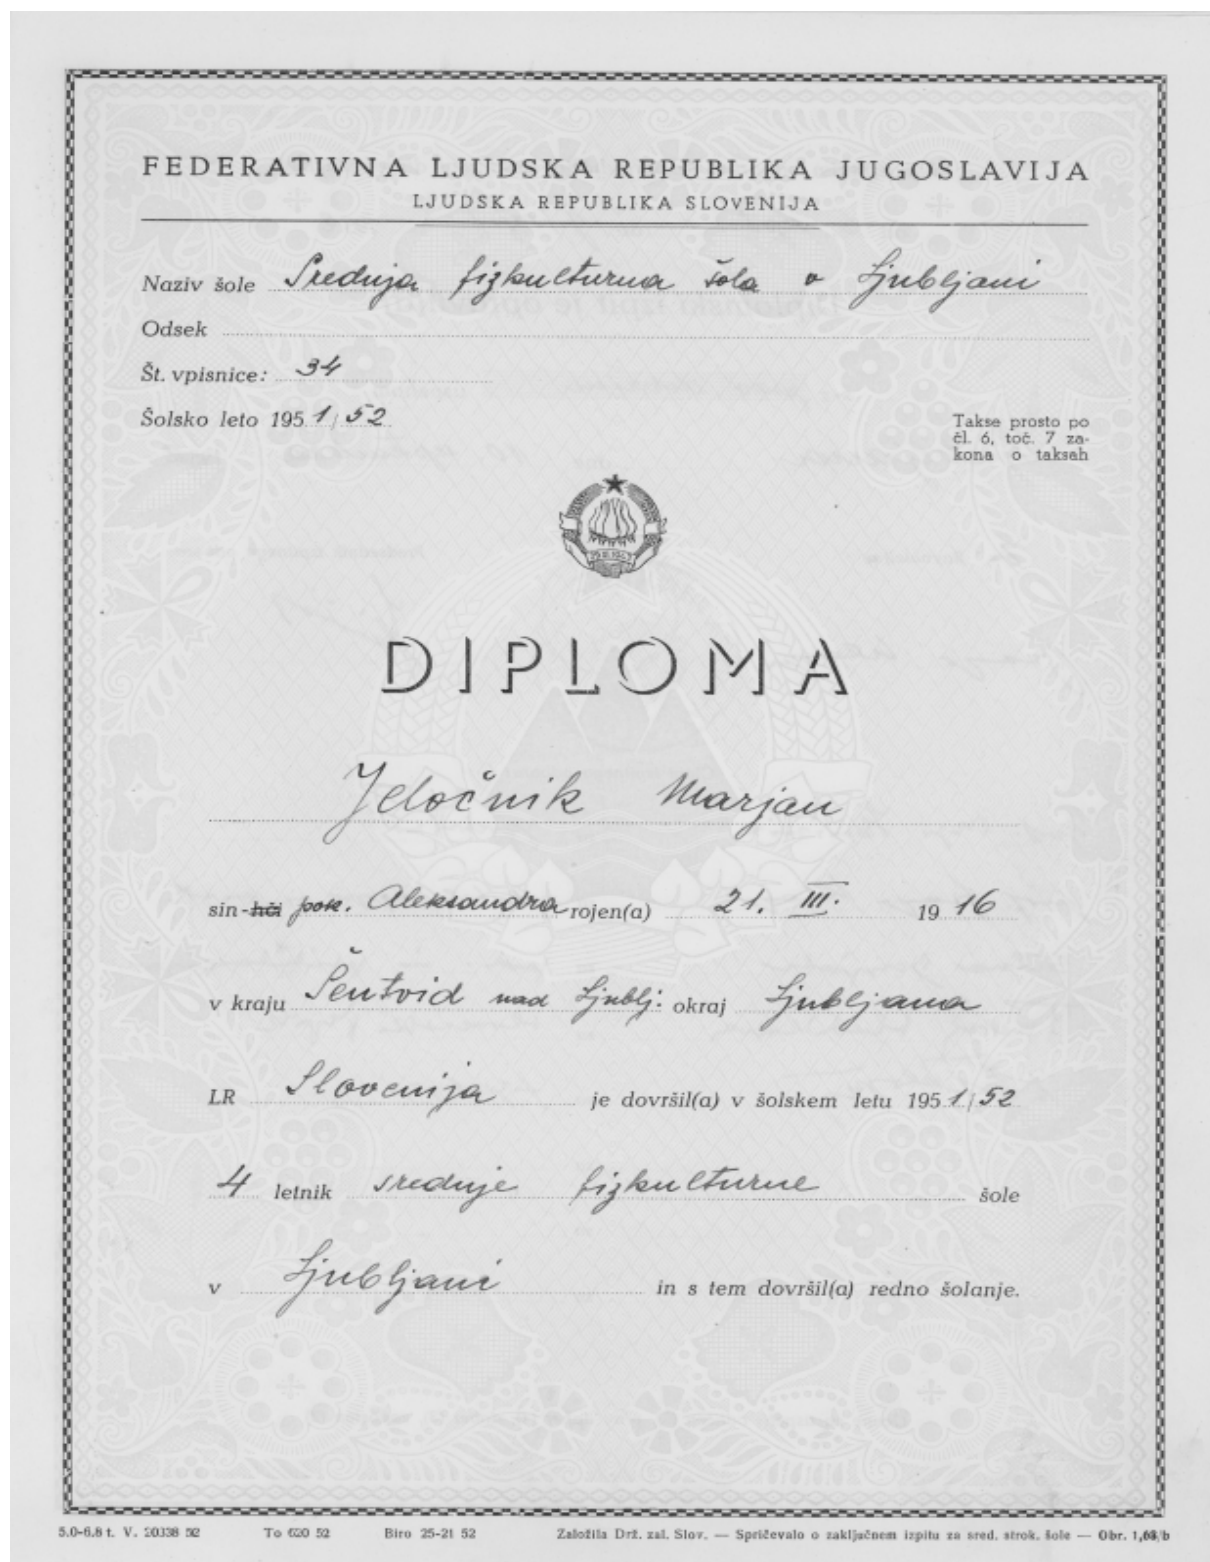 FEDERATIVNA LJUDSKA REPUBLIKA JUGOSLAVIJA
LJUDSKA REPUBLIKA SLOVENIJA
Naziv šole Srednja fizkulturna šola v Ljubljani
Odsek
Št. vpisnice: 34
Šolsko leto 1951/52
Takse prosto po
čl. 6, toč. 7 za-
kona o taksah
29.XI.1943
DIPLOMA
Jeločnik Marjan
sin-hči pok. Aleksandra rojen(a) 21. III. 1916
v kraju Šentvid nad Ljublj. okraj Ljubljana
LR Slovenija je dovršil(a) v šolskem letu 1951/52
4 letnik srednje fizkulturne šole
v Ljubljani in s tem dovršil(a) redno šolanje.
5.0-6.8 t. V. 20338 52 To 620 52 Biro 25-21 52 Založila Drž. zal. Slov. — Spričevalo o zaključnem izpitu za sred. strok. šole — Obr. 1,68/b